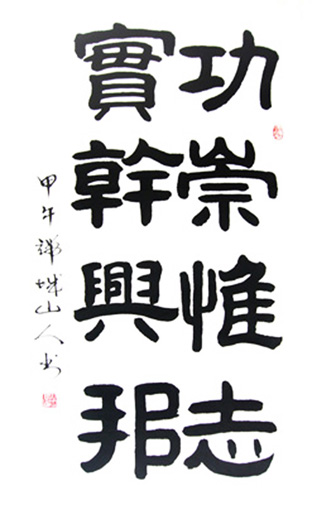 功崇惟志
實幹興邦
甲午彌城山人书